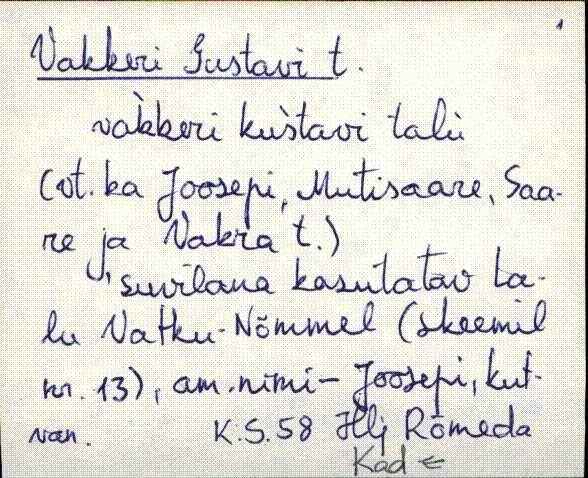 1
Vakkeri Gustavi t.
vak̀keri kus̀tavi talu
(vt. ka Joosepi, Mutisaare, Saa-
re ja Vakra t.)
'suvilana kasutatav ta-
lu Vatku-Nõmmel (skeemil
nr. 13), am. nimi - Joosepi, kut-
van. K.S. 58 Hlj Rõmeda
Kad ←